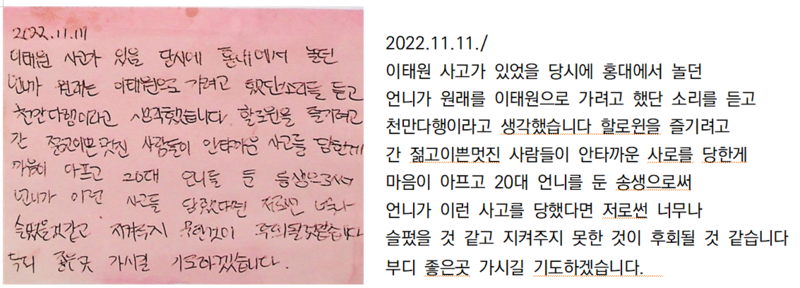 2022.11.11/
이태원 사고가 있을 당시에 홍대에서 놀던
언니가 원래는 이태원으로 가려고 했단소리를 듣고
천만다행이라고 생각했습니다 할로윈을 즐기려고
간 젊고이쁜멋진 사람들이 안타까운 사고를 당한게
마음이 아프고 20대 언니를 둔 동생으로써
언니가 이런 사고를 당했다면 저로썬 너무나
슬펐을것같고 지켜주지 못한것이 후회될것같습니다
부디 좋은곳 가시길 기도하겠습니다.
2022.11.11./
이태원 사고가 있었을 당시에 홍대에서 놀던
언니가 원래를 이태원으로 가려고 했단 소리를 듣고
천만다행이라고 생각했습니다 할로윈을 즐기려고
간 젊고이쁜멋진 사람들이 안타까운 사로를 당한게
마음이 아프고 20대 언니를 둔 송생으로써
언니가 이런 사고를 당했다면 저로썬 너무나
슬펐을 것 같고 지켜주지 못한 것이 후회될 것 같습니다
부디 좋은곳 가시길 기도하겠습니다.